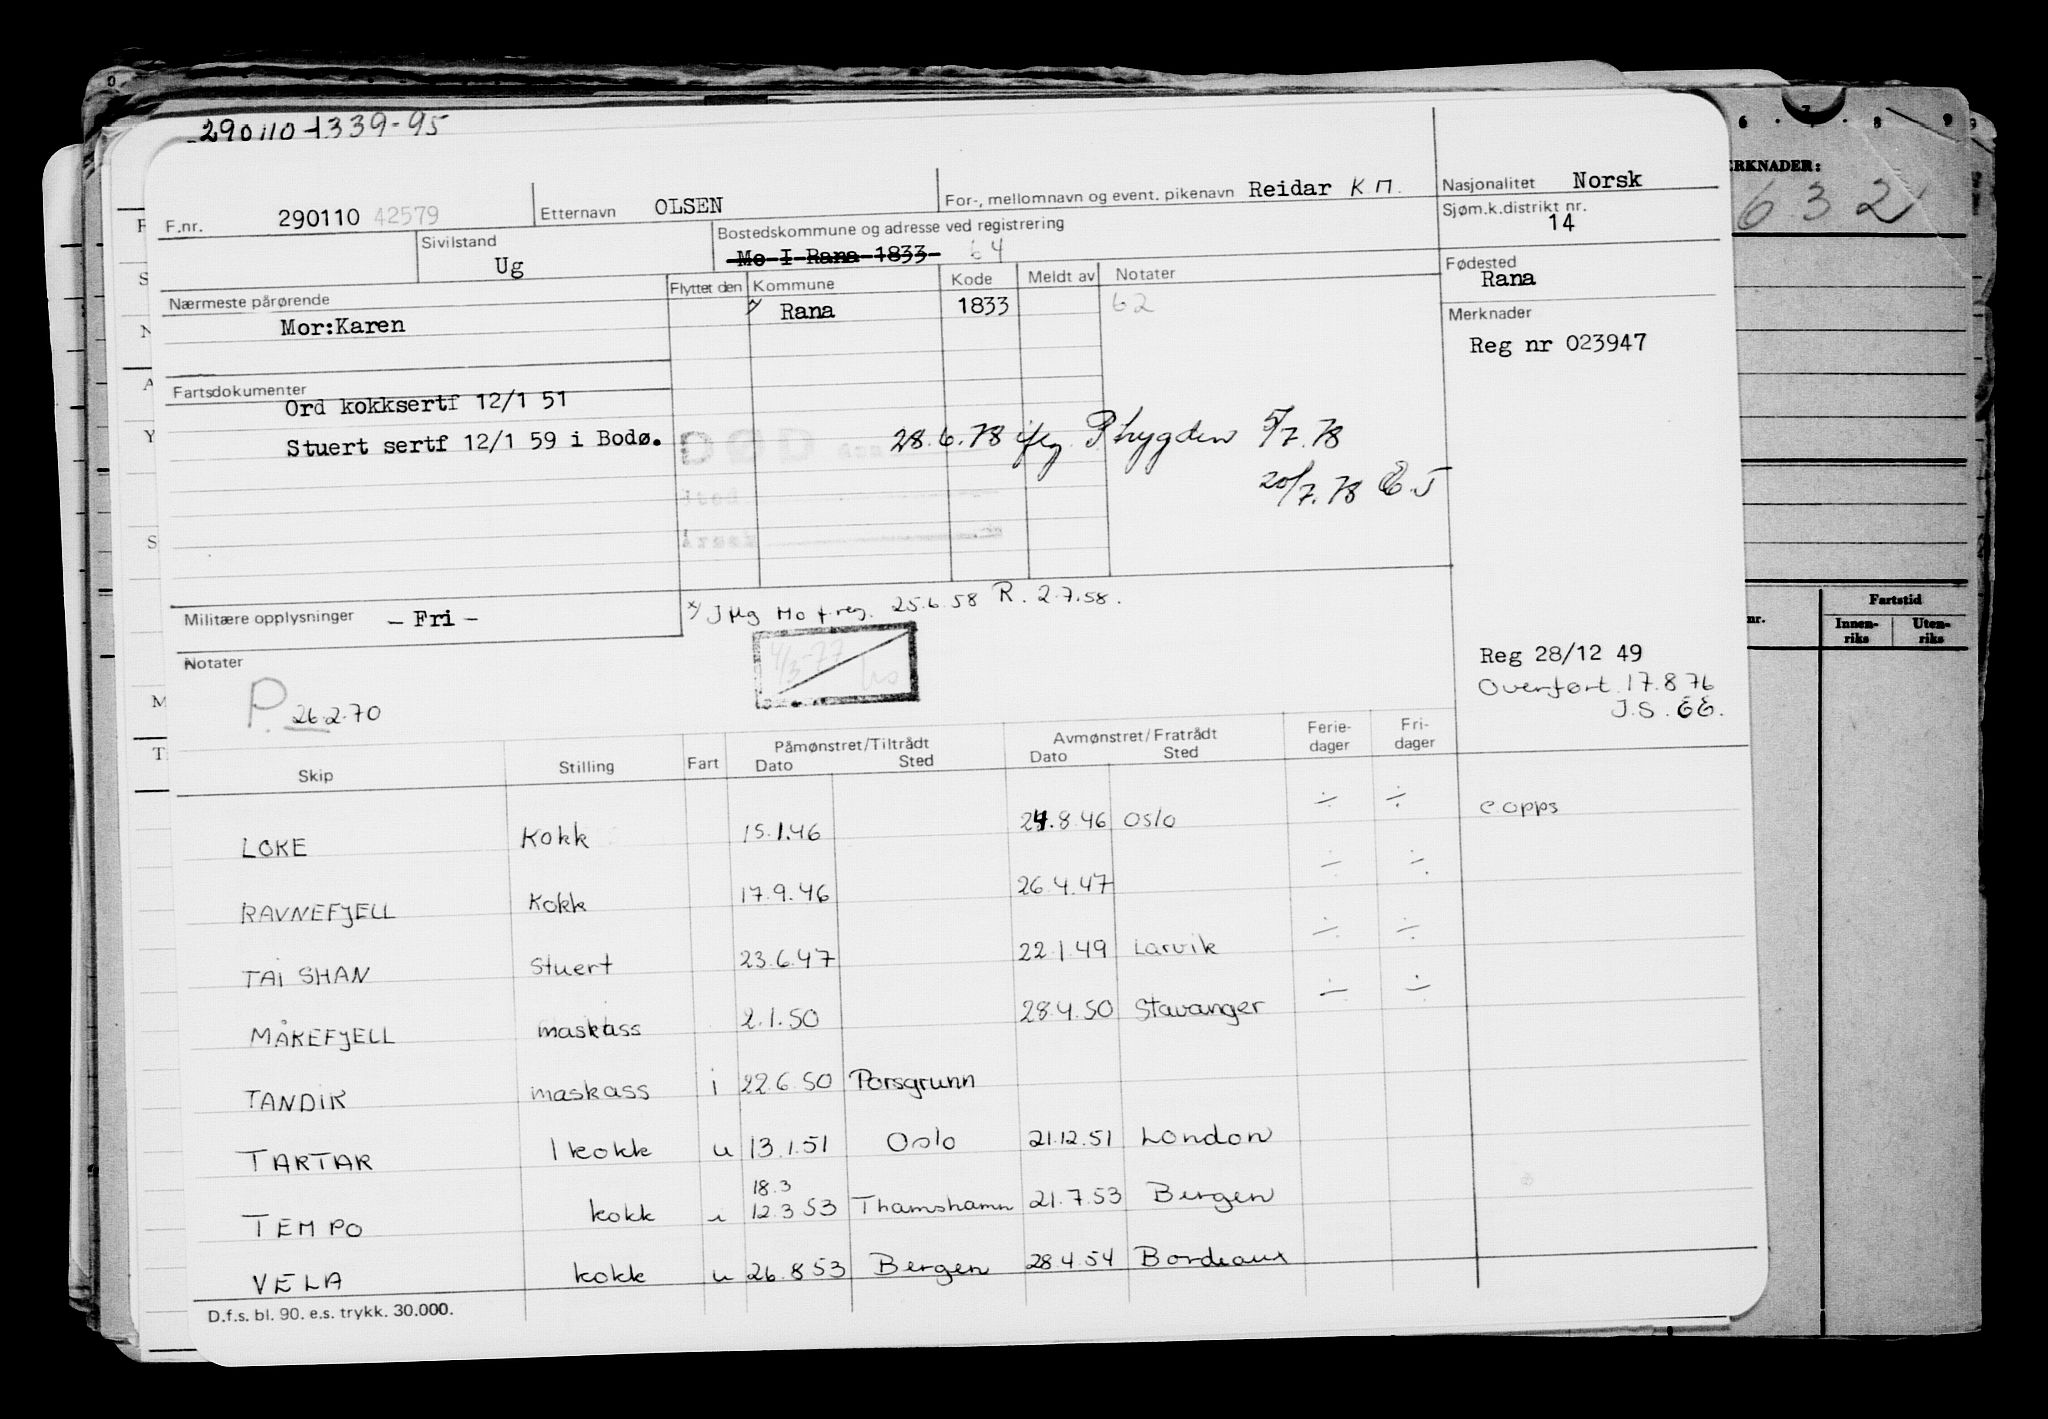 290110-1339-95
F.nr. 290110 42579 Etternavn OLSEN For-, mellomnavn og event. pikenavn Reidar K M. Nasjonalitet Norsk
Sjøm.k.distrikt nr. 14
Sivilstand Ug Bostedskommune og adresse ved registrering Mo I Rana 1833 64
Fødested Rana
Nærmeste pårørende Mor:Karen
Flyttet den Kommune Kode Meldt av Notater
x/ Rana 1833 62
Merknader
Reg nr 023947
Fartsdokumenter
Ord kokksertf 12/1 51
Stuert sertf 12/1 59 i Bodø.
DØD
28.6.78 iflg P trygden 5/7.78
20/7.78 E.J
Militære opplysninger – Fri –
x/ Iflg Mo f.reg. 25.6.58 R. 2.7.58.
Notater
P. 26.2.70
4/3-77
Reg 28/12 49
Overført 17.8 76
J.S. EE.
Skip Stilling Fart Påmønstret/Tiltrådt Dato Sted Avmønstret/Fratrådt Dato Sted Ferie-dager Fri-dager
LOKE Kokk 15.1.46 24.8.46 Oslo ÷ ÷ e opps
RAVNEFJELL Kokk 17.9.46 26.4.47 ÷ ÷
TAI SHAN Stuert 23.6.47 22.1.49 Larvik ÷ ÷
MÅKEFJELL maskass 2.1.50 28.4.50 Stavanger ÷ ÷
TANDIK maskass i 22.6.50 Porsgrunn
TARTAR 1 kokk u 13.1.51 Oslo 21.12.51 London
18.3
TEMPO kokk u 12.3 53 Thamshamn 21.7.53 Bergen
VELA kokk u 26.8 53 Bergen 28.4.54 Bordeaux
D.f.s. bl. 90. e.s. trykk. 30.000.
6 7 8 9
ERKNADER:
632
nr.
Fartstid
Innen-riks Uten-riks